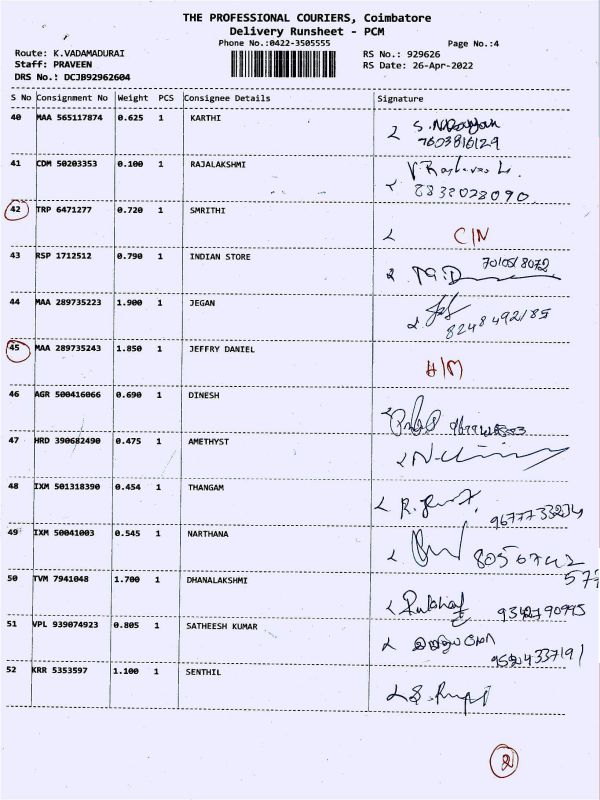 THE PROFESSIONAL COURIERS, Coimbatore
Delivery Runsheet - PCM
Phone No.:0422-3505555 Page No.:4
Route: K.VADAMADURAI RS No.: 929626
Staff: PRAVEEN RS Date: 26-Apr-2022
DRS No.: DCJB92962604
S No Consignment No Weight PCS Consignee Details Signature
40 MAA 565117874 0.625 1 KARTHI
7603816129
41 CDM 50203353 0.100 1 RAJALAKSHMI
8838028090
42 TRP 6471277 0.720 1 SMRITHI
C/N
43 RSP 1712512 0.790 1 INDIAN STORE
44 MAA 289735223 1.900 1 JEGAN
8248492185
45 MAA 289735243 1.850 1 JEFFRY DANIEL
H/M
46 AGR 500416066 0.690 1 DINESH
47 HRD 390682490 0.475 1 AMETHYST
48 IXM 501318390 0.454 1 THANGAM
49 IXM 50041003 0.545 1 NARTHANA
50 TVM 7941048 1.700 1 DHANALAKSHMI
9342790995
51 VPL 939074923 0.805 1 SATHEESH KUMAR
52 KRR 5353597 1.100 1 SENTHIL